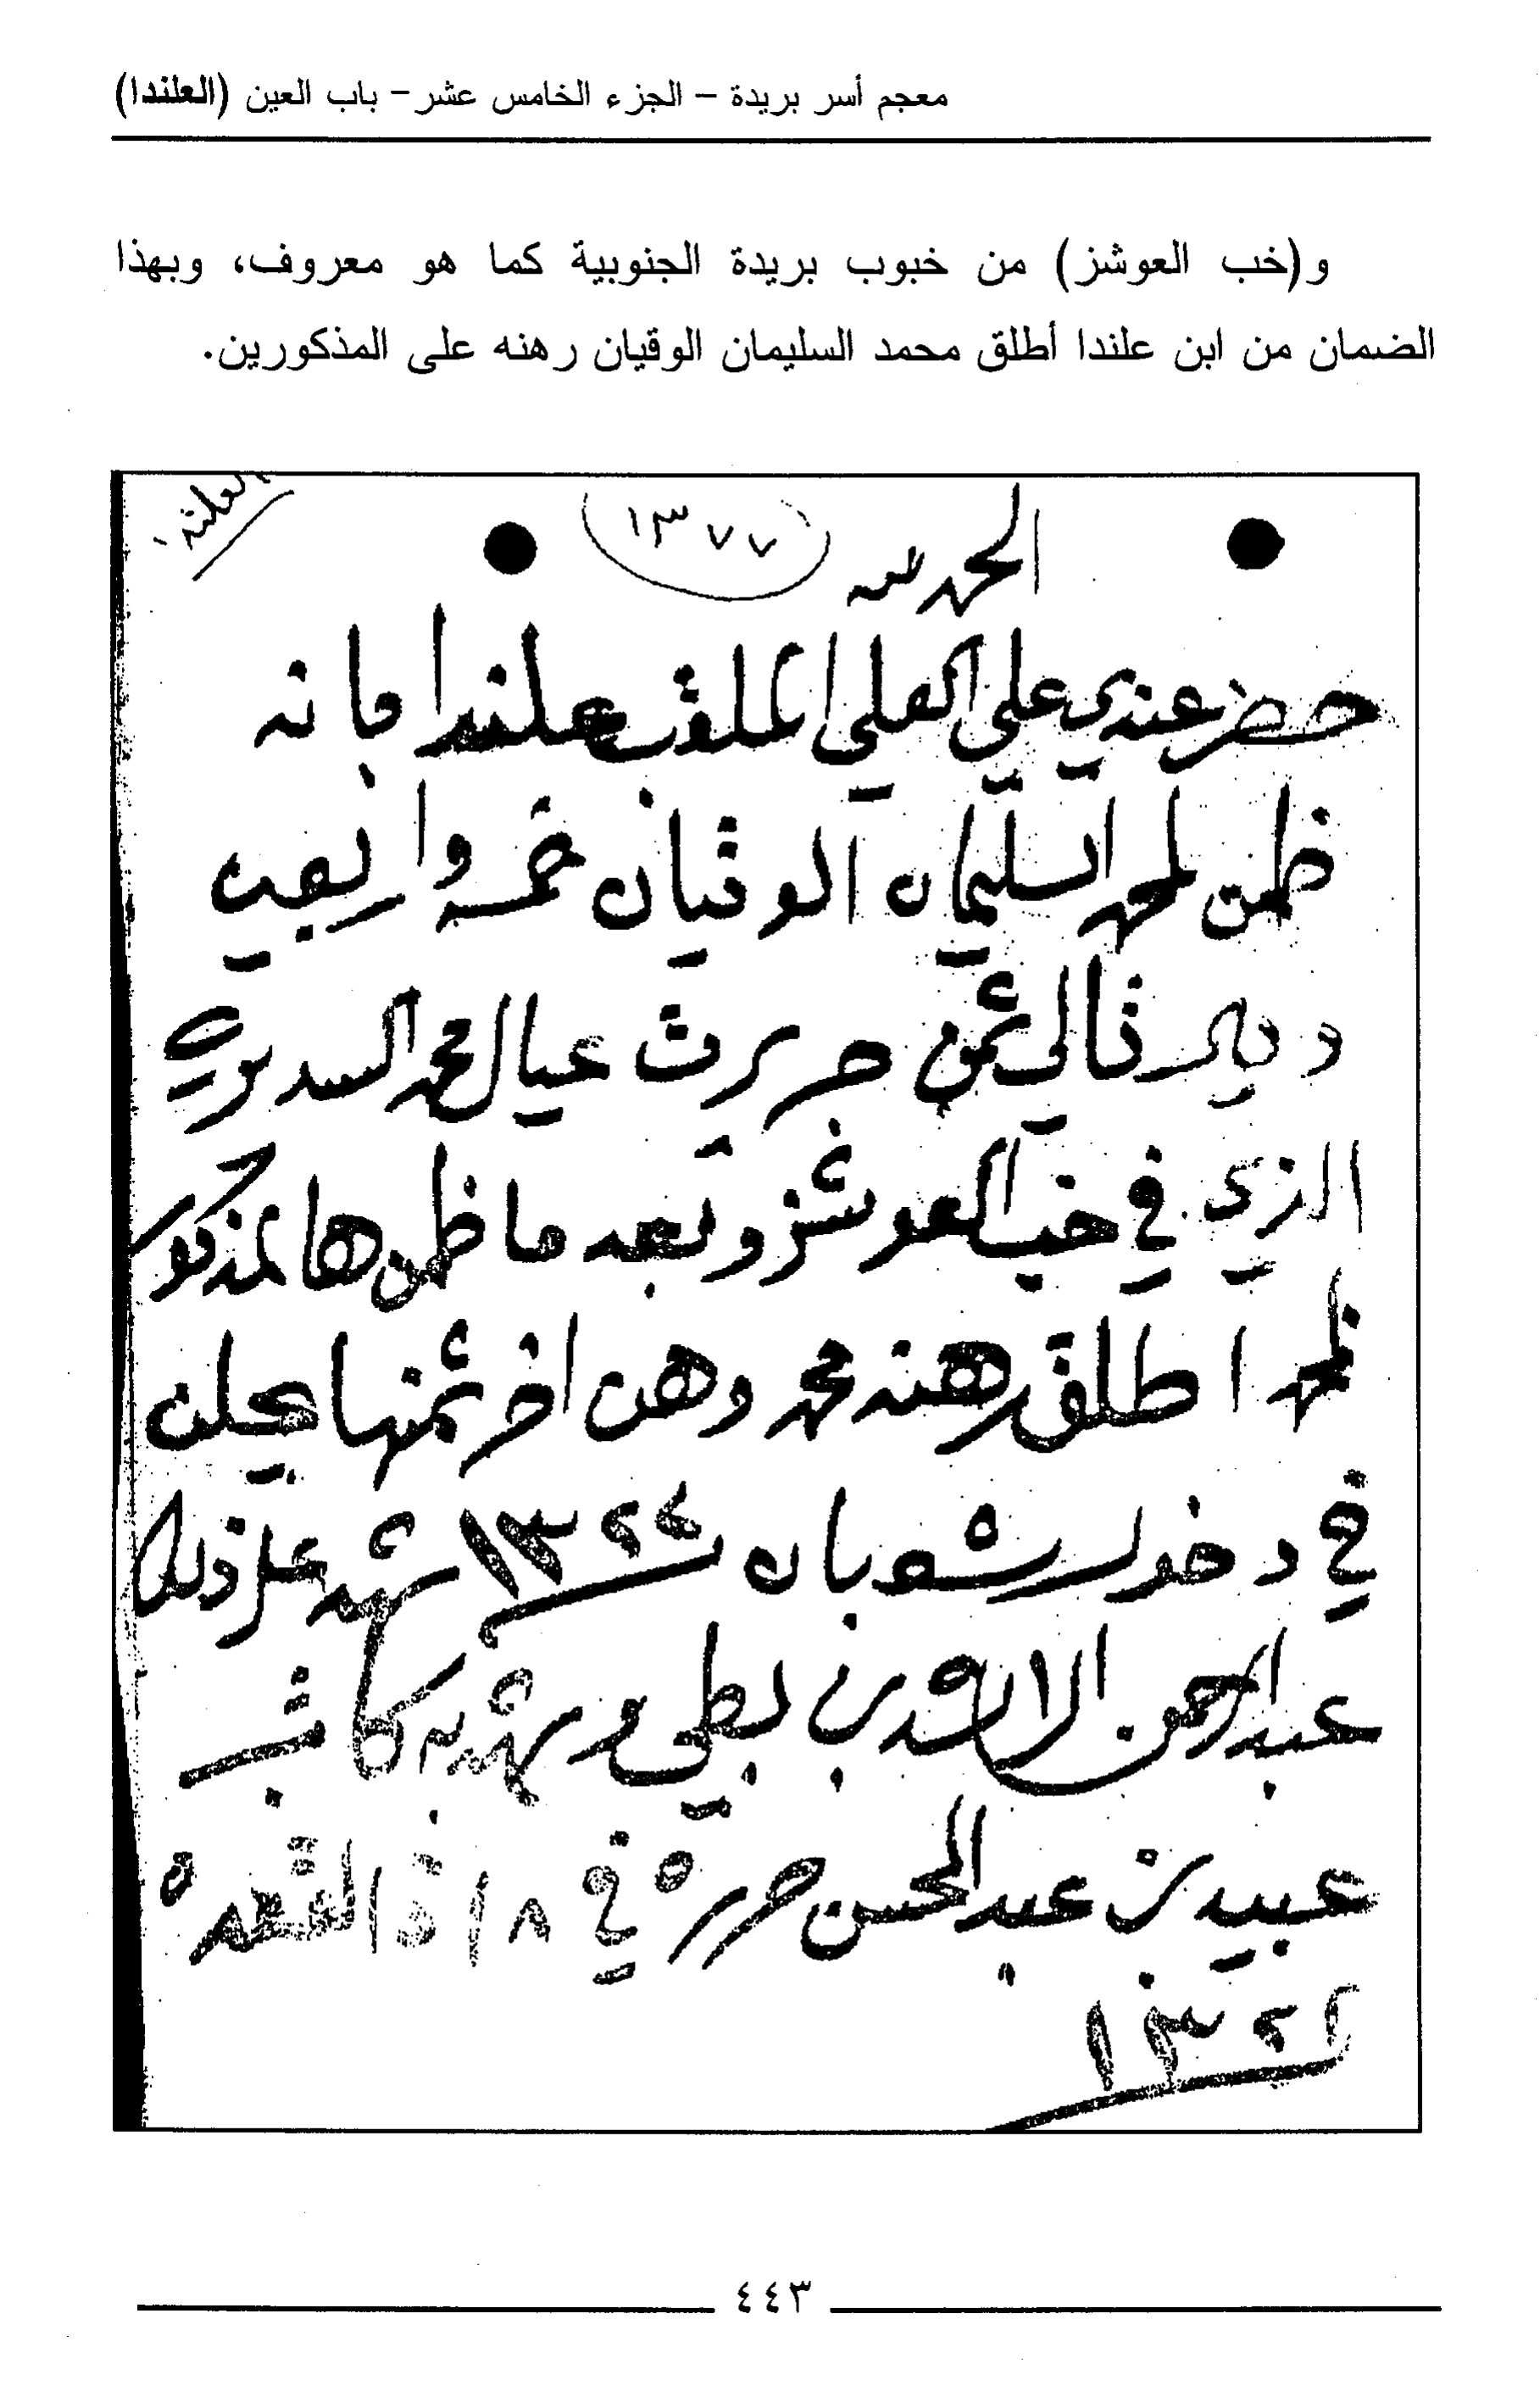 معجم أسر بريدة – الجزء الخامس عشر – باب العين (العلندا)
و(خب العوشز) من خبوب بريدة الجنوبية كما هو معروف، وبهذا
الضمان من ابن علندا أطلق محمد السليمان الوقيان رهنه على المذكورين.
العلندا
١٣٧٧
الحمد لله
حضر عندي علي العلي الملقب علندا بانه
ظمن لمحمد السليمان الوقيان خمسه واربعين
ريال تالي ثمن جريرت عيال محمد السديري
الذي في خب العوشز وبعد ما ظمن هالمذكور
لمحمد اطلق رهنه محمد وهن اخر ثمنها يحلن
في دخول شعبان ١٣٢٤ شهد على ذلك
عبدالرحمن الراشد بن بطي وشهد به كاتبه
عبيد بن عبدالمحسن حرره في ١٨ ذا القعده
١٣٢٢
٤٤٣